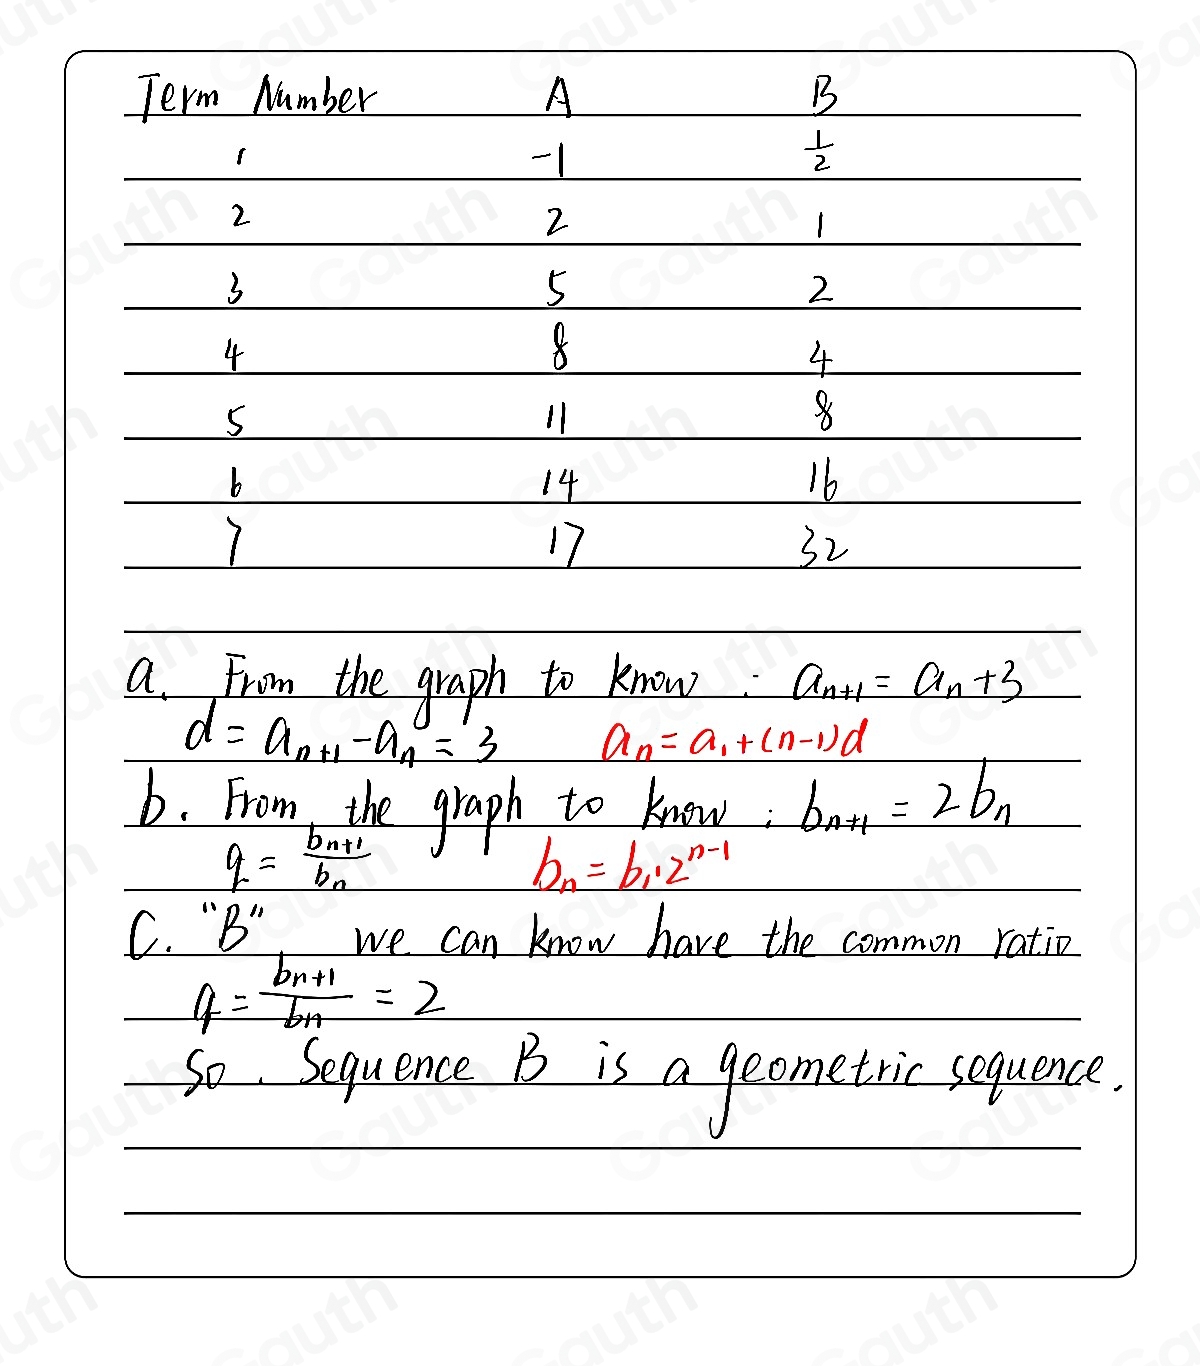 Term Number A B
1 -1 1/2
2 2 1
3 5 2
4 8 4
5 11 8
6 14 16
7 17 32
a. From the graph to know : aₙ₊₁ = aₙ + 3
d = aₙ₊₁ - aₙ = 3 aₙ = a₁ + (n-1)d
b. From the graph to know : bₙ₊₁ = 2bₙ
q = bₙ₊₁/bₙ bₙ = b₁·2ⁿ⁻¹
C. "B" we can know have the common ratio
q = bₙ₊₁/bₙ = 2
So . Sequence B is a geometric sequence.
Gauth